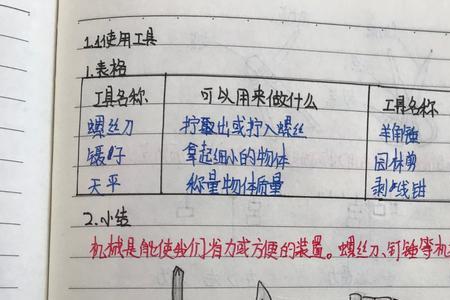 1.1使用工具
1.表格
工具名称 可以用来做什么 工具名称
螺丝刀 拧取出或拧入螺丝 羊角锤
镊子 拿起细小的物体 园林剪
天平 称量物体质量 剥线钳
2.小结
机械是能使我们省力或方便的装置。螺丝刀、钉锤等机